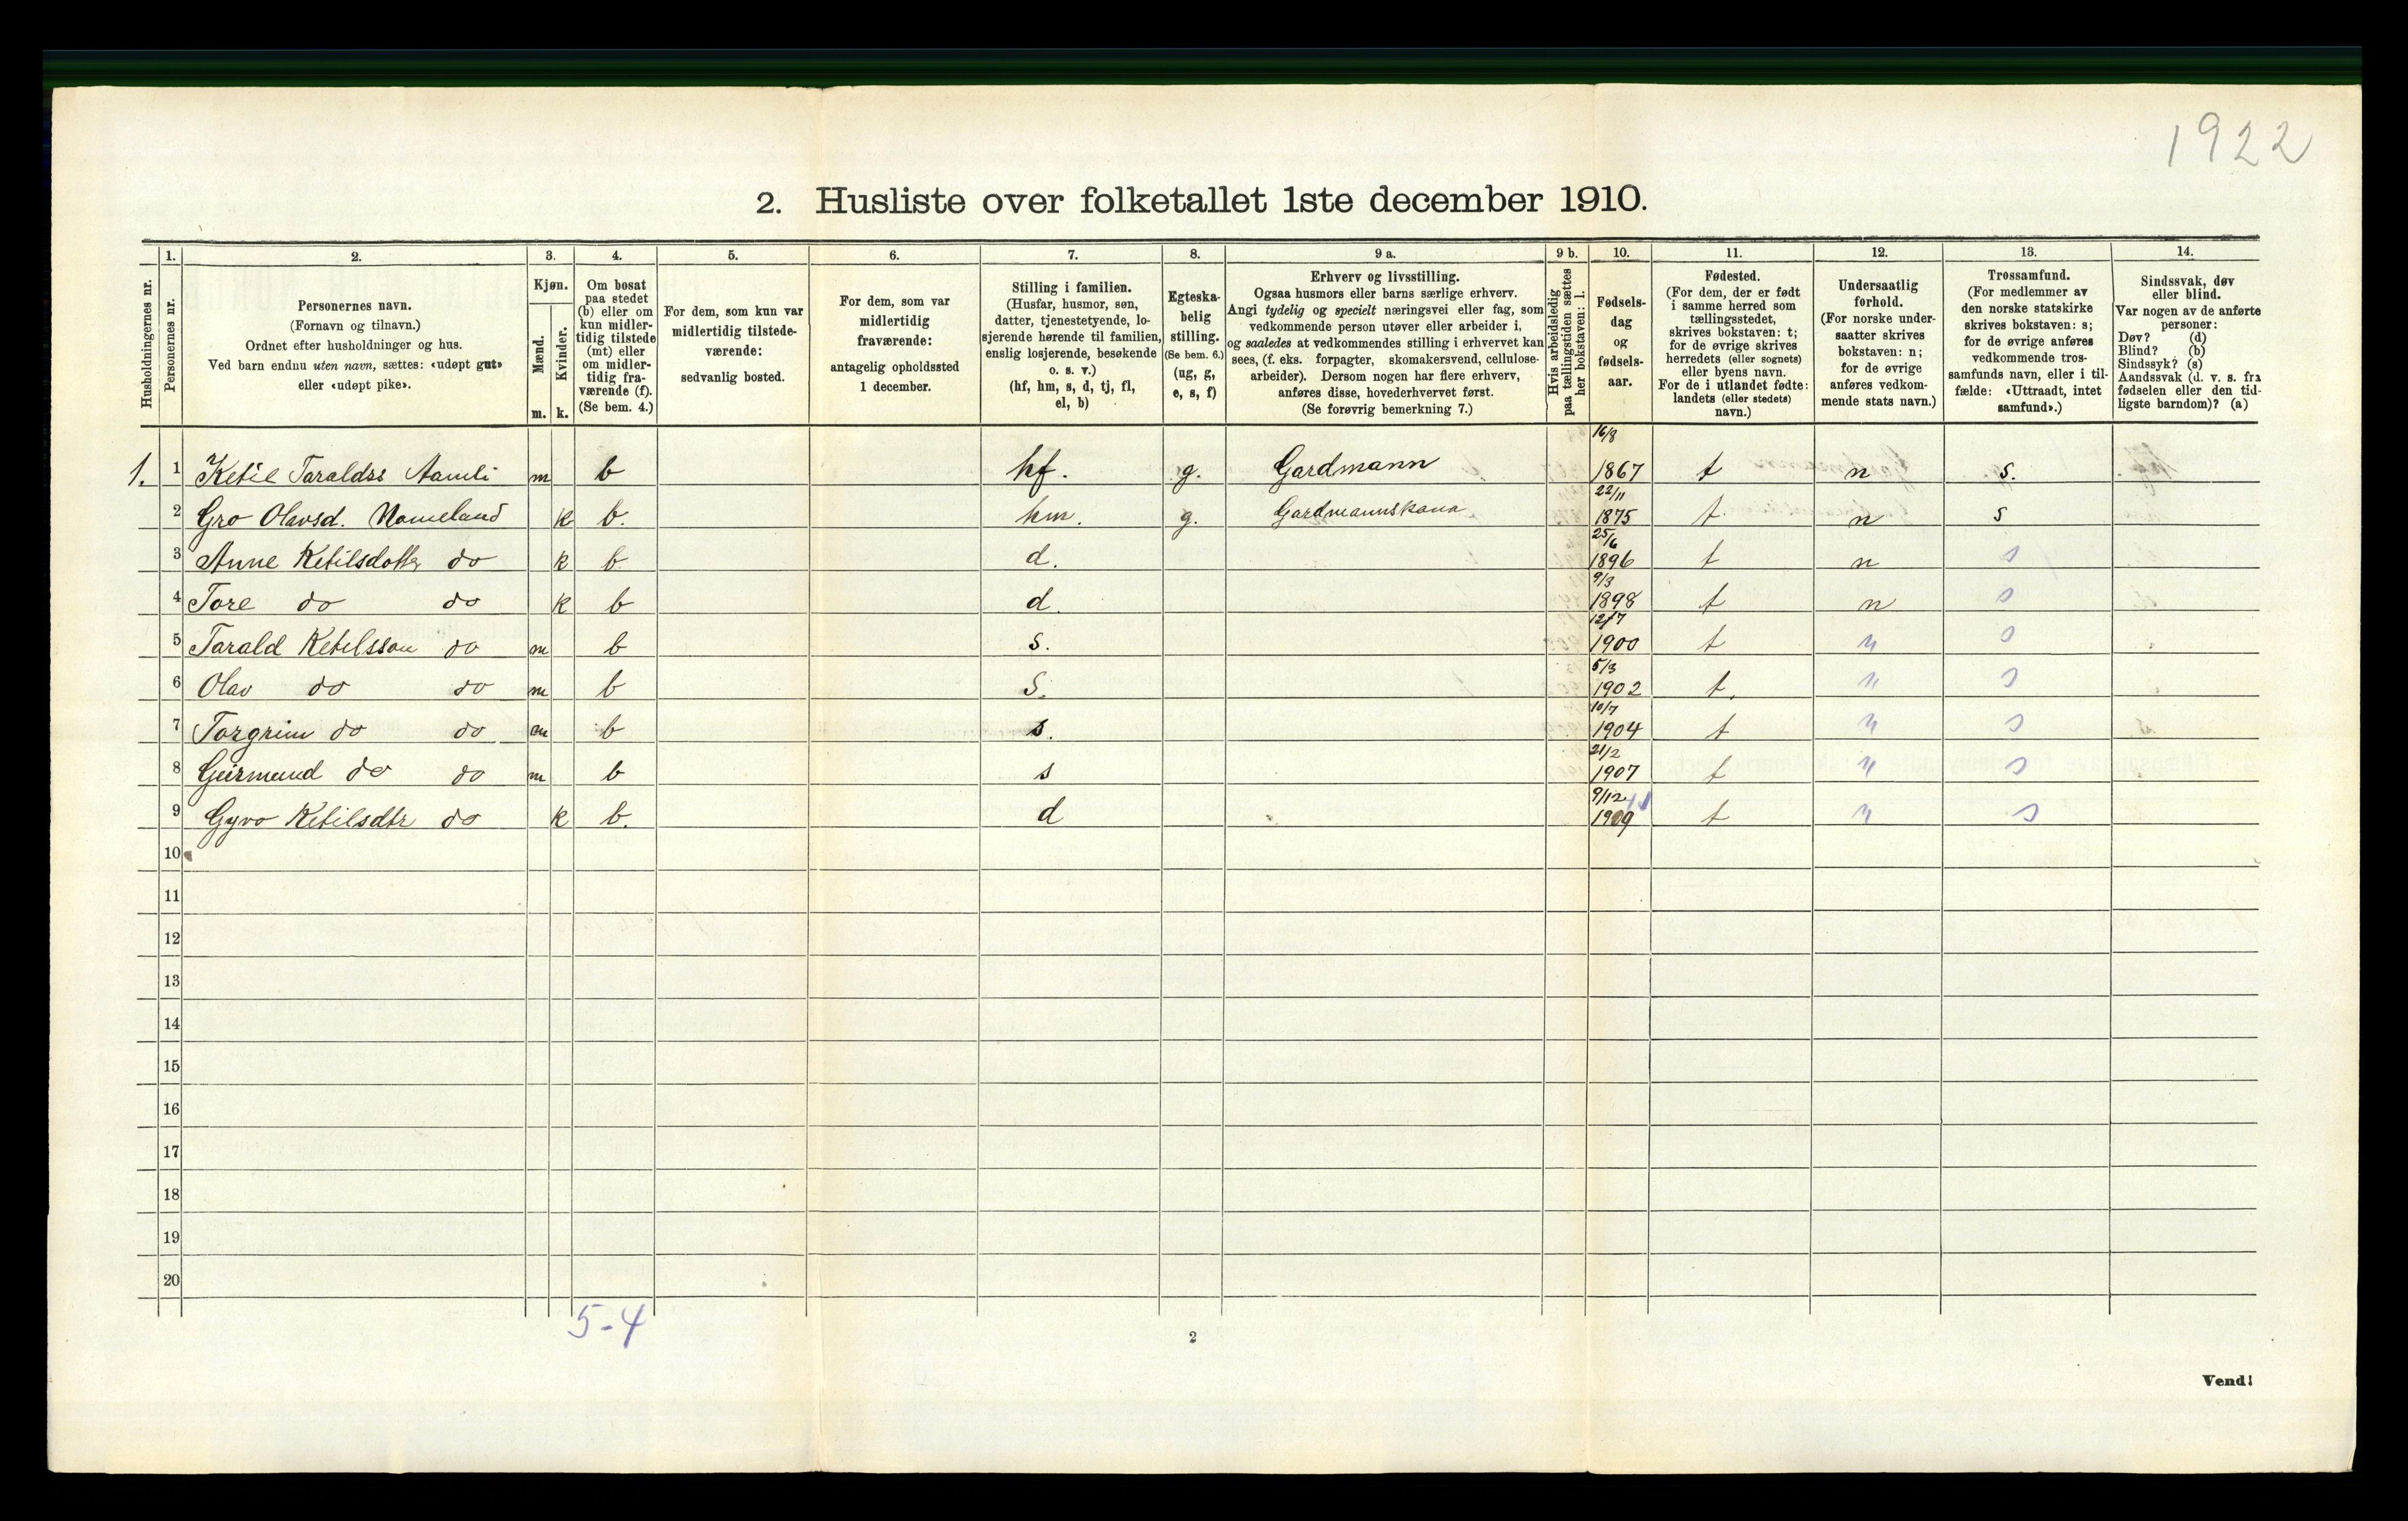 1922
2. Husliste over folketallet 1ste december 1910.
Husholdningernes nr.
1.
Personernes nr.
2.
Personernes navn.
(Fornavn og tilnavn.)
Ordnet efter husholdninger og hus.
Ved barn endnu uten navn, sættes: «udøpt gut»
eller «udøpt pike».
3.
Kjøn.
Mænd.
m.
Kvinder.
k.
4.
Om bosat
paa stedet
(b) eller om
kun midler-
tidig tilstede
(mt) eller
om midler-
tidig fra-
værende (f).
(Se bem. 4.)
5.
For dem, som kun var
midlertidig tilstede-
værende:
sedvanlig bosted.
6.
For dem, som var
midlertidig
fraværende:
antagelig opholdssted
1 december.
7.
Stilling i familien.
(Husfar, husmor, søn,
datter, tjenestetyende, lo-
sjerende hørende til familien,
enslig losjerende, besøkende
o. s. v.)
(hf, hm, s, d, tj, fl,
el, b)
8.
Egteska-
belig
stilling.
(Se bem. 6.)
(ug, g,
e, s, f)
9 a.
Erhverv og livsstilling.
Ogsaa husmors eller barns særlige erhverv.
Angi tydelig og specielt næringsvei eller fag, som
vedkommende person utøver eller arbeider i,
og saaledes at vedkommendes stilling i erhvervet kan
sees, (f. eks. forpagter, skomakersvend, cellulose-
arbeider). Dersom nogen har flere erhverv,
anføres disse, hovederhvervet først.
(Se forøvrig bemerkning 7.)
9 b.
Hvis arbeidsledig
paa tællingstiden sættes
her bokstaven: l.
10.
Fødsels-
dag
og
fødsels-
aar.
11.
Fødested.
(For dem, der er født
i samme herred som
tællingsstedet,
skrives bokstaven: t;
for de øvrige skrives
herredets (eller sognets)
eller byens navn.
For de i utlandet fødte:
landets (eller stedets)
navn.)
12.
Undersaatlig
forhold.
(For norske under-
saatter skrives
bokstaven: n;
for de øvrige
anføres vedkom-
mende stats navn.)
13.
Trossamfund.
(For medlemmer av
den norske statskirke
skrives bokstaven: s;
for de øvrige anføres
vedkommende tros-
samfunds navn, eller i til-
fælde: «Uttraadt, intet
samfund».)
14.
Sindssvak, døv
eller blind.
Var nogen av de anførte
personer:
Døv? (d)
Blind? (b)
Sindssyk? (s)
Aandssvak (d. v. s. fra
fødselen eller den tid-
ligste barndom)? (a)
1. 1 Ketil Taraldss Aamli m b hf. g. Gardmann 16/8 1867 t n s.
2 Gro Olavsd. Nomeland k b. hm. g. Gardmannskona 22/11 1875 t n s
3 Anne Ketilsdotter do k b d. 25/6 1896 t n s
4 Tore do do k b d. 9/3 1898 t n s
5 Tarald Ketilsson do m b s. 12/7 1900 t n s
6 Olav do do m b s. 5/3 1902 t. n s
7 Torgrim do do m b s. 10/7 1904 t n s
8 Geirmund do do m b s 21/2 1907 t n s
9 Gyro Ketilsdtr do k b. d 9/12 1909 t n s
10
11
12
13
14
15
16
17
18
19
20
5-4
2
Vend!